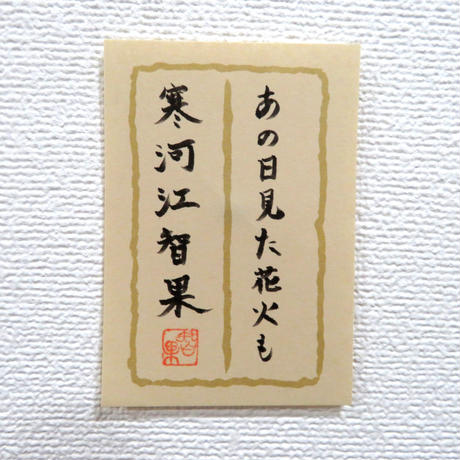 あの日見た花火も
寒河江智果
智果